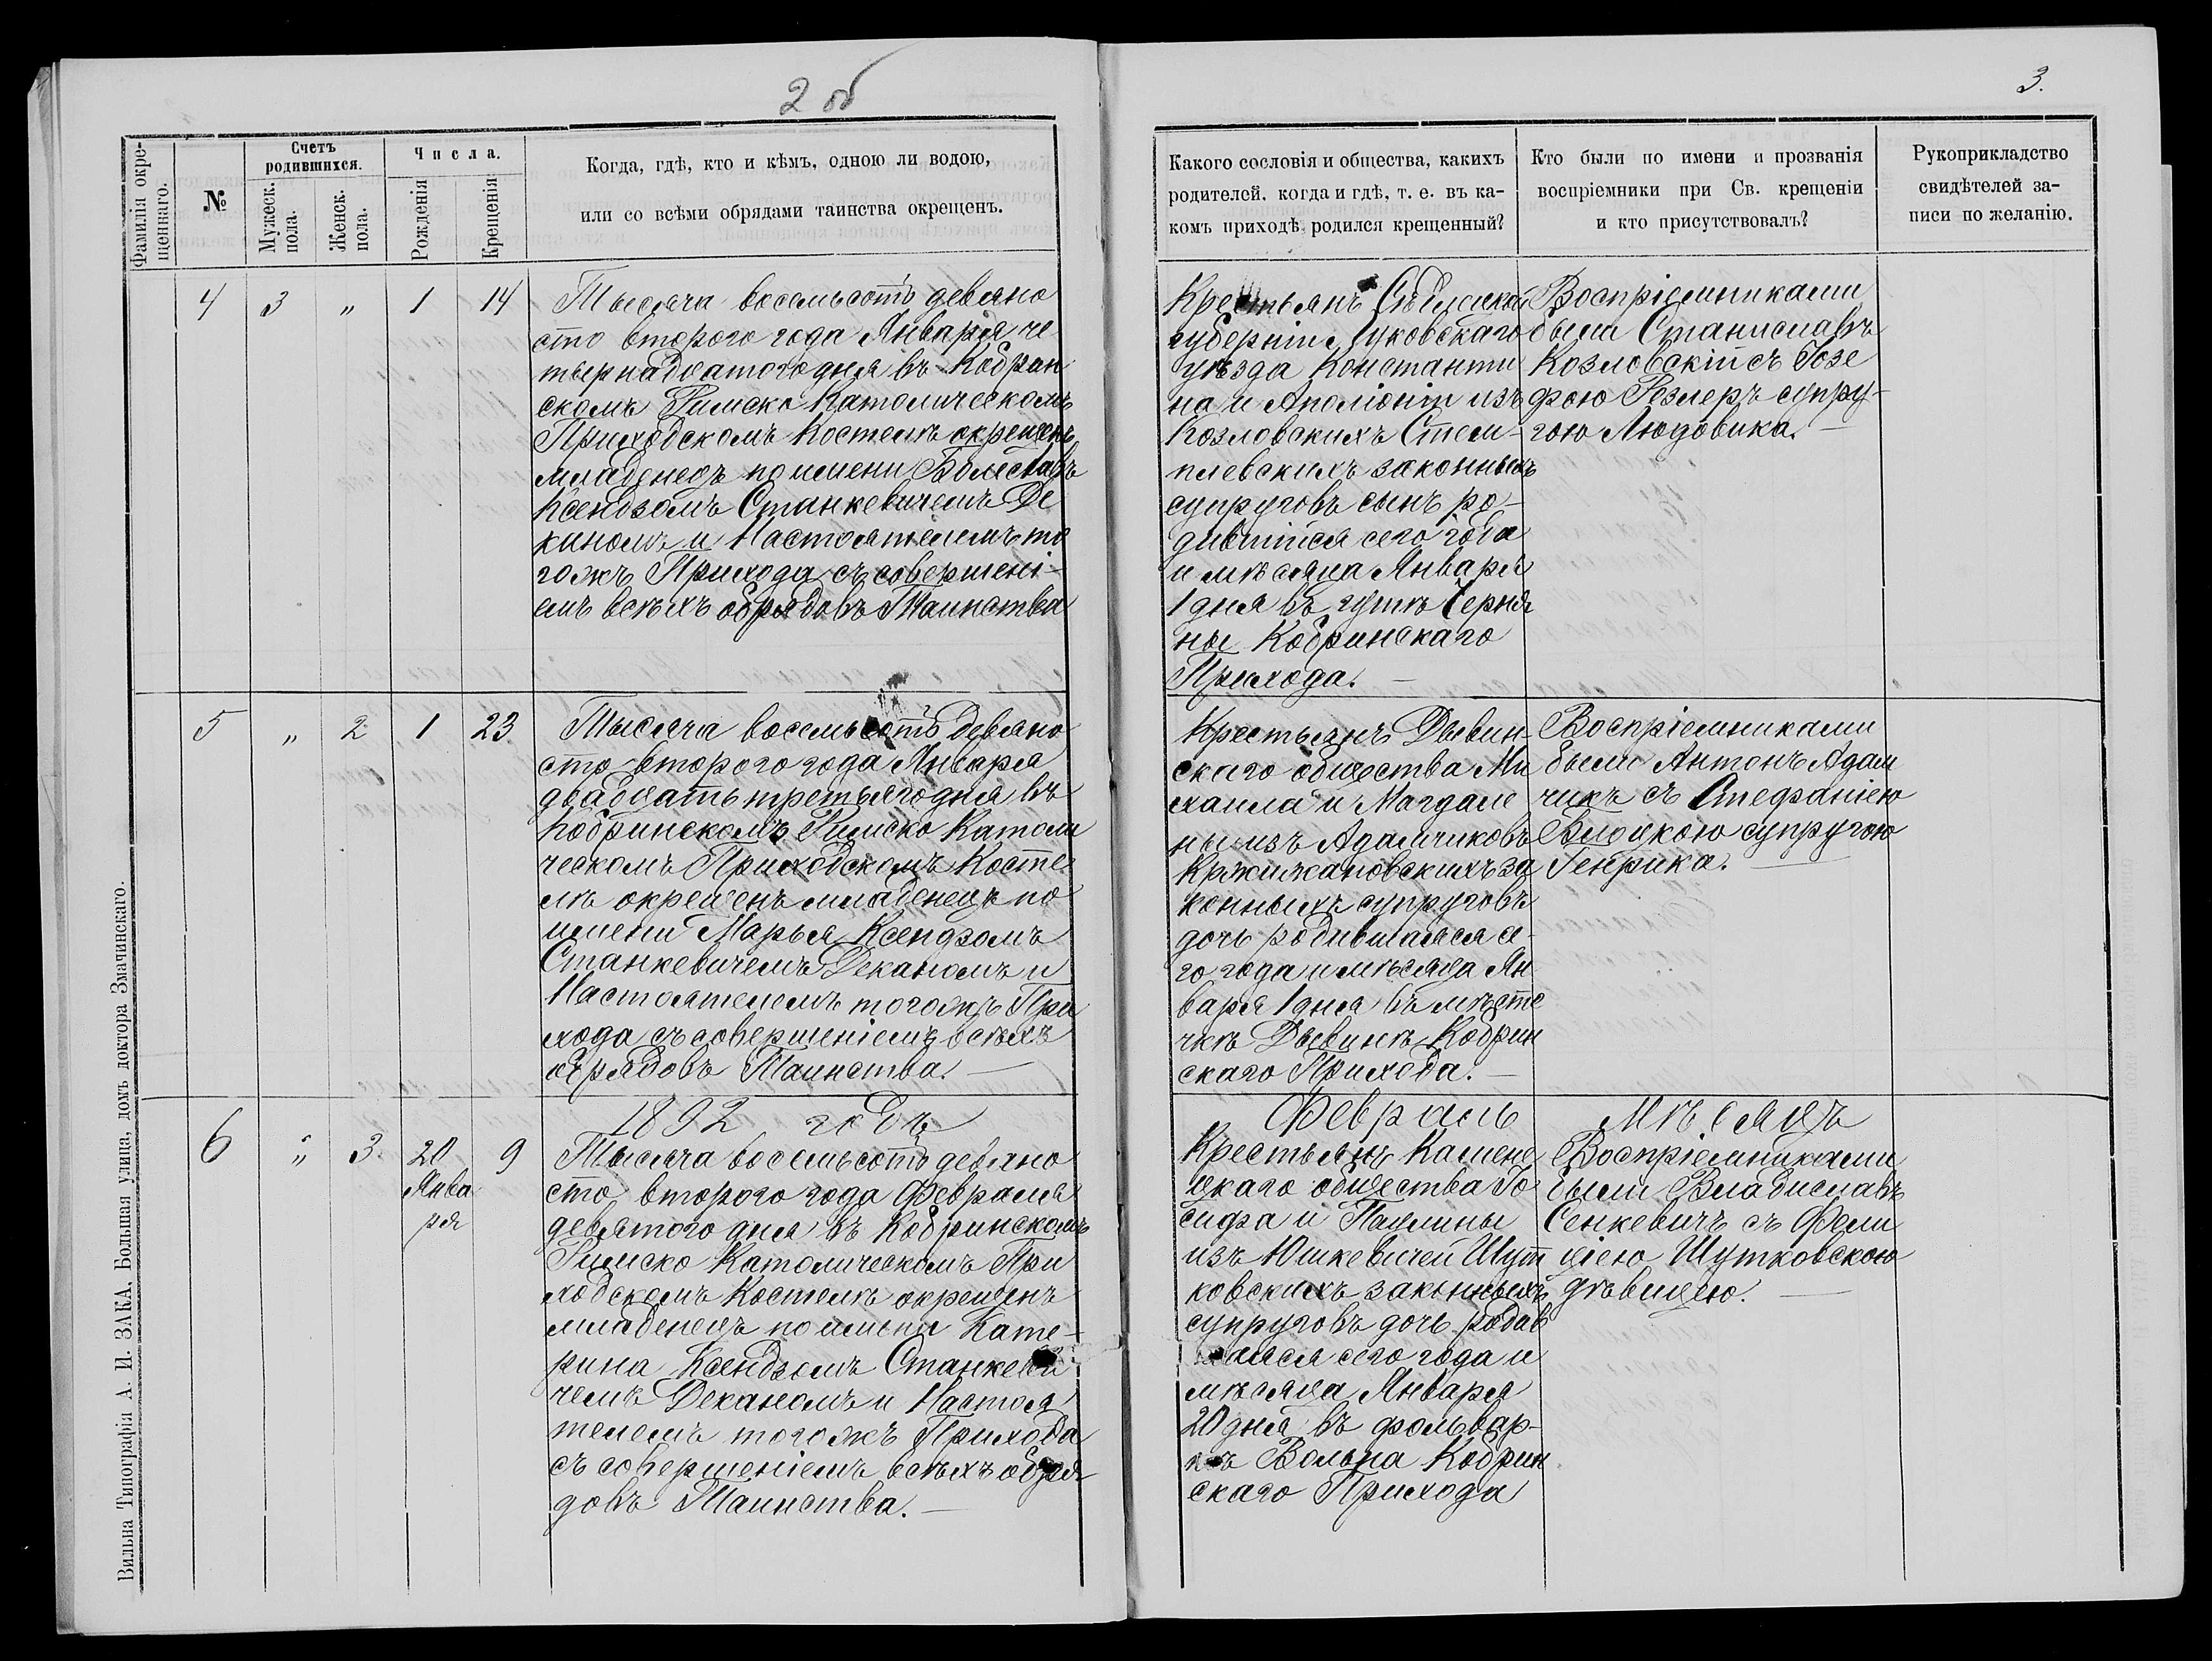 2 об
3.
Фамилія окрещеннаго.
№
Счетъ родившихся.
Мужеск. пола.
Женск. пола.
Числа.
Рожденія
Крещенія
Когда, гдѣ, кто и кѣмъ, одною ли водою,
или со всѣми обрядами таинства окрещенъ.
Какого сословія и общества, какихъ
родителей, когда и гдѣ, т. е. въ ка-
комъ приходѣ родился крещенный?
Кто были по имени и прозванія
воспріемники при Св. крещеніи
и кто присутствовалъ?
Рукоприкладство
свидѣтелей за-
писи по желанію.
4 3 „ 1 14
Тысяча восемьсотъ девяно
сто второго года Января че
тырнадцатого дня въ Кобрин
скомъ Римско Католическомъ
Приходскомъ Костелѣ окрещенъ
младенецъ по имени Болеславъ
Ксендзомъ Станкевичемъ Де
каномъ и Настоятелемъ то
гожъ Прихода съ совершені-
емъ всѣхъ обрядовъ Таинства
Крестьянъ Сѣдлецкой
губерніи Луковскаго
уѣзда Константи
на и Аполіоніи изъ
Козловскихъ Стем-
плевскихъ законныхъ
супруговъ сынъ ро-
дившійся сего года
и мѣсяца Января
1 дня въ гутѣ Черня
ны Кобринскаго
Прихода. —
Воспріемниками
были Станиславъ
Козловскій съ Юзе
фою Резлеръ супру-
гою Людовика. —
5 „ 2 1 23
Тысяча восемьсотъ девяно
сто второго года Января
двадцать третьяго дня въ
Кобринскомъ Римско Католи
ческомъ Приходскомъ Косте
лѣ окрещенъ младенецъ по
имени Марья Ксендзомъ
Станкевичемъ Деканомъ и
Настоятелемъ тогожъ При
хода съ совершеніемъ всѣхъ
обрядовъ Таинства. —
Крестьянъ Дывин-
скаго общества Ми
хаила и Магдале
ны изъ Адамчиковъ
Кржижановскихъ за
конныхъ супруговъ
дочь родившаяся се-
го года и мѣсяца Ян
варя 1 дня въ мѣсте
чкѣ Дывинѣ Кобрин
скаго Прихода. —
Воспріемниками
были Антонъ Адам
чикъ съ Стефаніею
супругою
Генрика. —
6 „ 3 20 Января 9
1892 годъ
Тысяча восемьсотъ девяно
сто второго года Февраля
девятого дня въ Кобринскомъ
Римско Католическомъ При
ходскомъ Костелѣ окрещенъ
младенецъ по имени Кате-
рина Ксендзомъ Станкеви
чемъ Деканомъ и Настоя
телемъ тогожъ Прихода
съ совершеніемъ всѣхъ обря-
довъ Таинства. —
Февраль
Крестьянъ Камене
цкаго общества Іо
сифа и Паулины
изъ Юшкевичей Шут
ковскихъ законныхъ
супруговъ дочь родив
шаяся сего года и
мѣсяца Января
20 дня въ фольвар-
кѣ Вольна Кобрин
скаго Прихода
Мѣсяцъ
Воспріемниками
были Владиславъ
Сенкевичъ съ Фели
ціею Шутковскою
дѣвицею. —
Вильна Типографія А. И. ЗАКА, Большая улица, домъ доктора Змачинскаго.